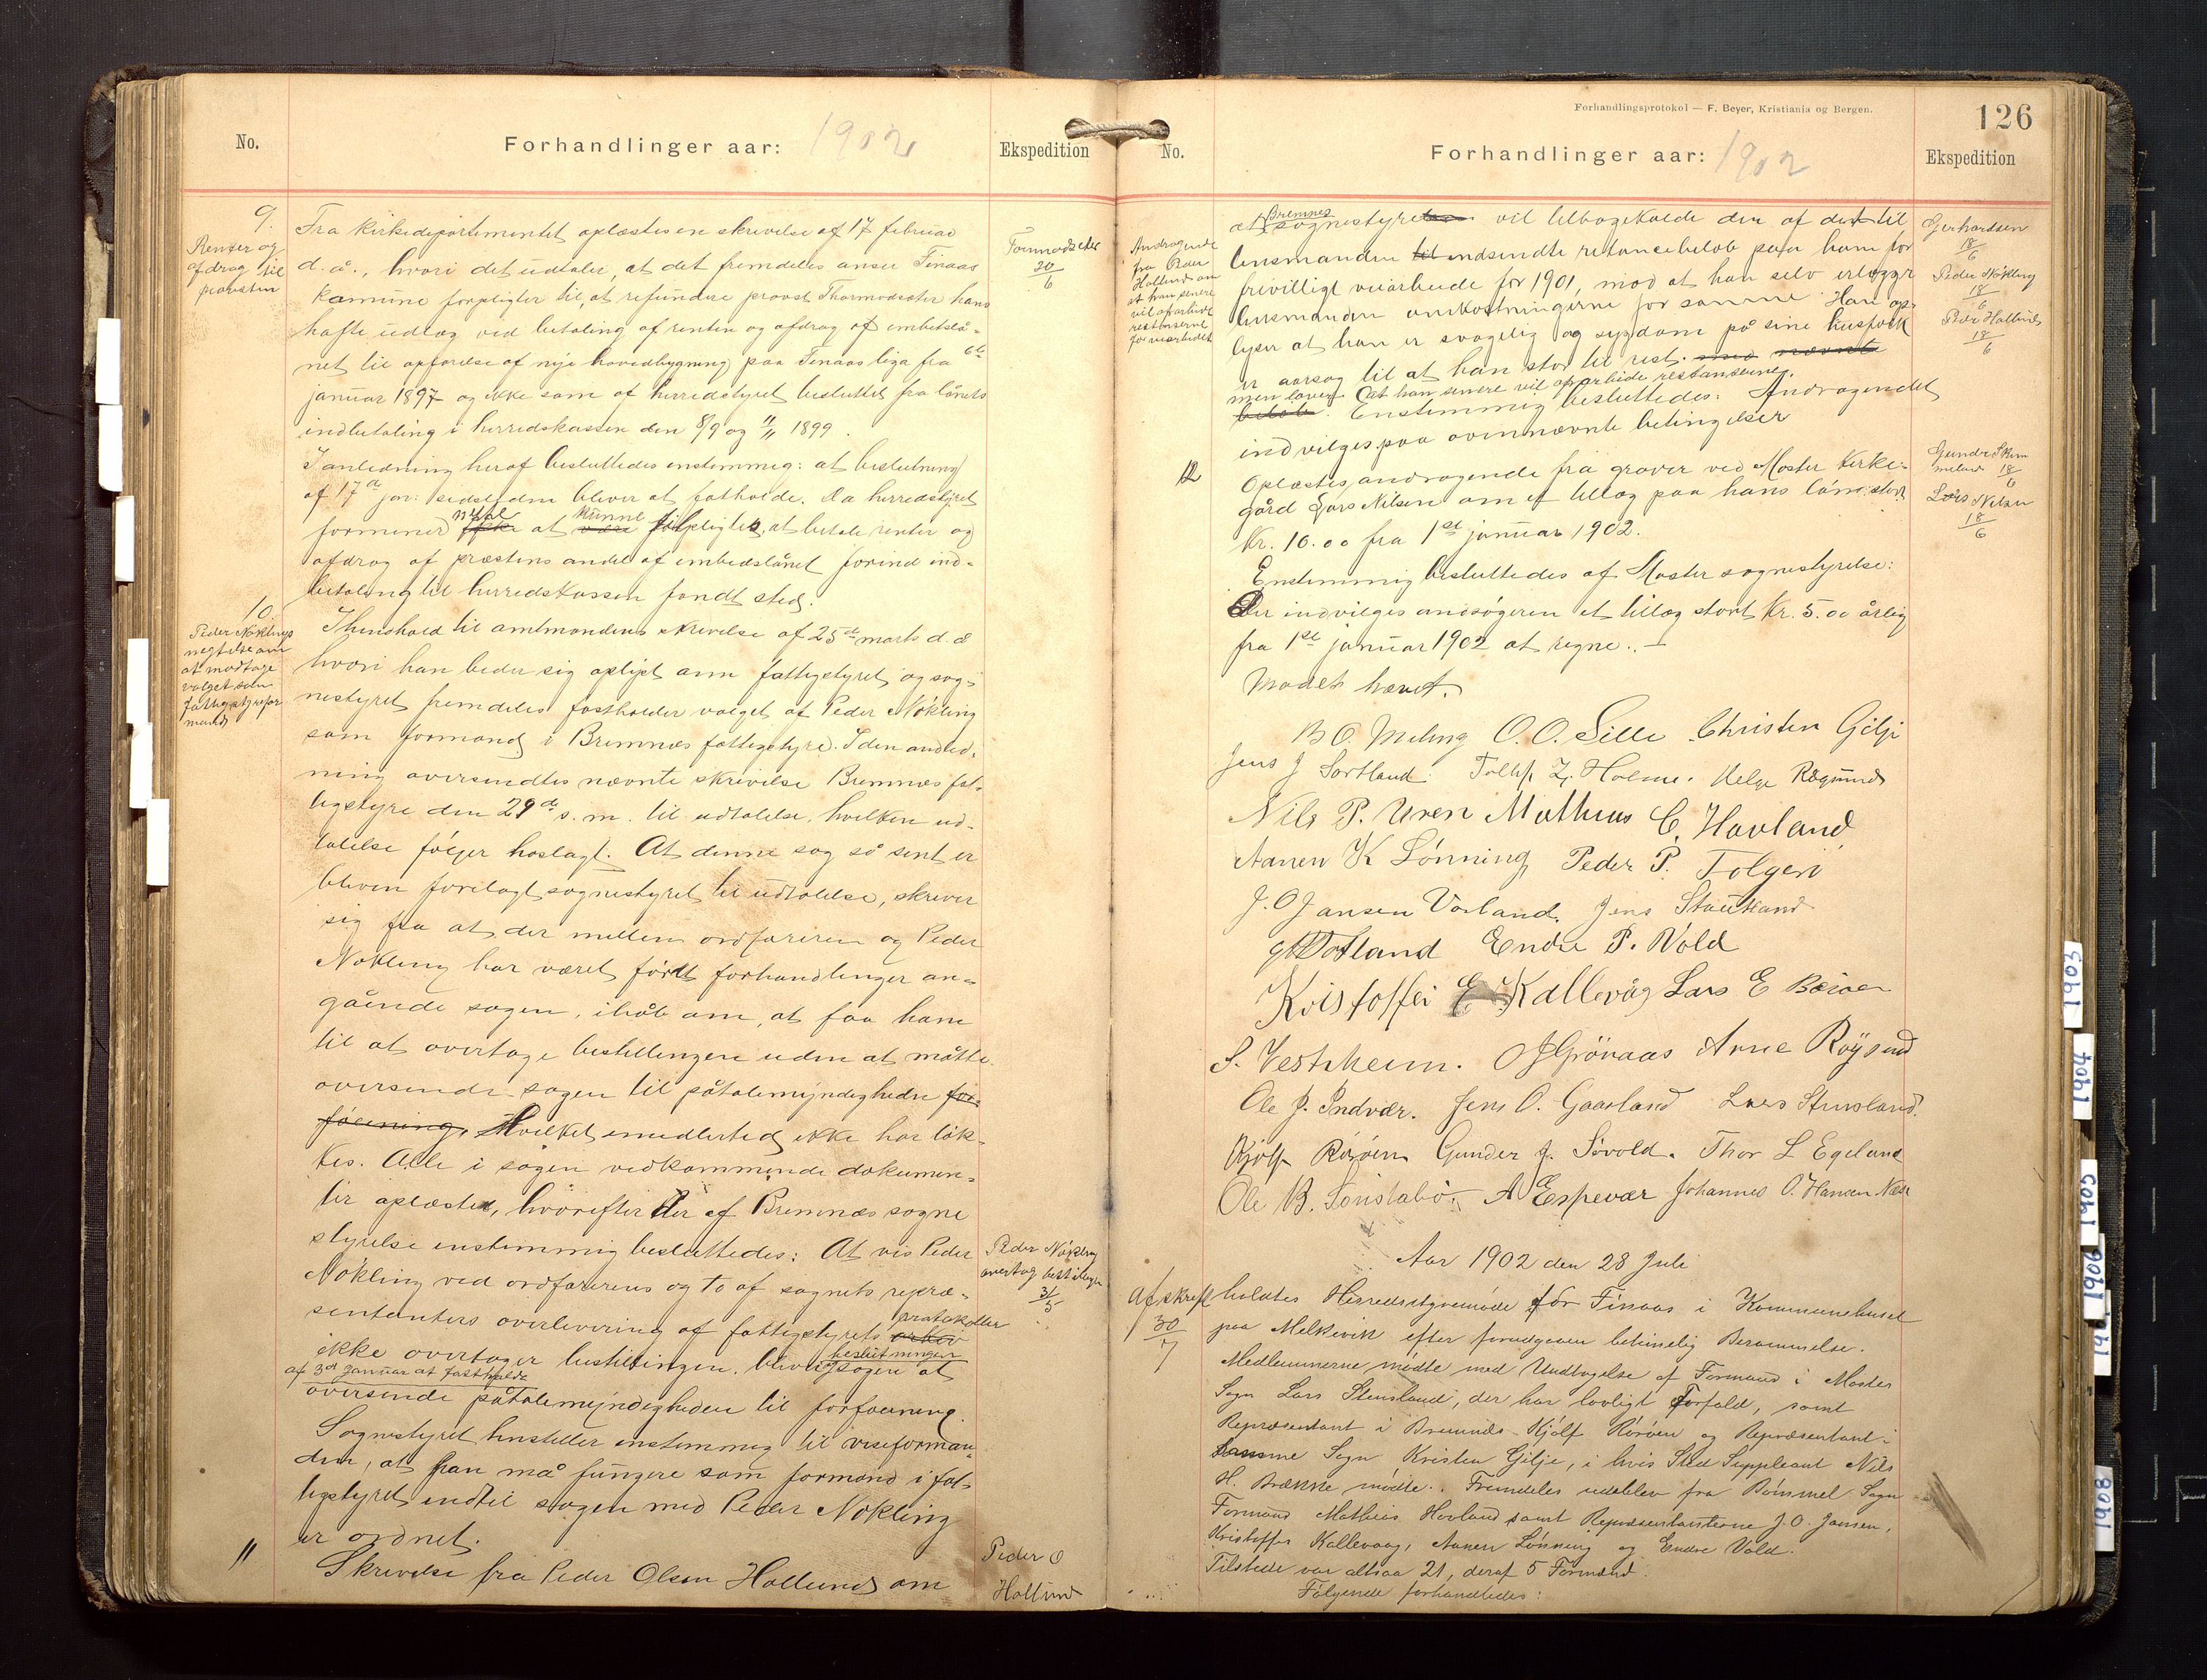 No.
Forhandlinger aar: 1902
Ekspedition
9.
Renter og
afdrag til
provsten
Fra kirkedepartementet oplæstes en skrivelse af 17 februar
d. å., hvori det udtaler, at det fremdeles anser Finaas
kamune forpligtet til, at refundere provst Thormodsæter hans
hafte udlæg ved betaling af renten og afdrag af embetslå-
net til opførelse af nye hovedbygning paa Finaas liga fra 6te
januar 1897 og ikke som af herredstyret besluttet fra lånets
indbetaling i herredskassen den 8/9 og 11/11 1899.
I anledning heraf besluttedes enstemmig: at beslutning
af 17de jan: sidstleden bliver at fatholde. Da herredstyret
formener ikke at kunne forpligtes, at betale renter og
afdrag af præstens andel af embedslånet forind ind-
betaling til herredskassen fandt sted.
Tormodsæter
20/6
10.
Peder Nøklings
negtelse om
at modtage
valget som
fattigstyrefor
mand
I henhold til amtmandens skrivelse af 25de marts d. å
hvori han beder sig oplyst om fattigstyret og sog-
nestyret fremdeles fastholder valget af Peder Nökling
som formand i Bremnæs fattigstyre. I den anled-
ning oversendtes nævnte skrivelse Bremnæs fat-
tigstyre den 29de s. m. til udtalelse, hvilken ud-
talelse følger hoslagt. At denne sag så sent er
bleven forelagt sognestyret til udtalelse, skriver
sig fra at der mellem ordføreren og Peder
Nökling har været ført forhandlinger an-
gående sagen, i håb om, at faa ham
til at overtage bestillingen uden at måtte
oversende sagen til påtalemyndigheden for-
föiening, Hvilket imidlertid ikke har lök-
kes. Alle i sagen vedkommende dokumen-
ter oplæstes, hvorefter der af Bremnæs sogne
styrelse enstemmig besluttedes: At vis Peder
Nökling ved ordførerens og to af sognets repræ-
sentanters overlevering af fattigstyrets protokoller
ikke overtager bestillingen, bliver beslutningen
af 3de januar at fastholde sagen at
oversende påtalemyndigheden til forföiening.
Sognestyret henstiller enstemmig til viseforman-
den, at han må fungere som formand i fat-
tigstyret indtil sagen med Peder Nökling
er ordnet.
Peder Nökling
overtog bestillingen
31/5
11
Skrivelse fra Peder Olsen Hollund om
Peder O
Hollund
Forhandlingsprotokol — F. Beyer, Kristiania og Bergen.
126
No.
Forhandlinger aar: 1902
Ekspedition
Andragende
fra Peder
Hollund om
at han senere
vil afarbeide
restanserne
for veiarbeidet
at Bremnes sognestyre vil tilbagekalde den af det til
lensmanden indsendte restancebeløb paa ham for
frivilligt veiarbeide for 1901, mod at han selv erlægger
lensmanden omkostningerne for samme. Han op-
lyser at han er svagelig og sygdom på sine husfolk
er aarsag til at han står til rest. med nævnte
men lover at han senere vil afarbeide restanserne.
beløb. Enstemmig besluttedes: Andragendet
indvilges paa ovennævnte betingelser
Gerhardsen
18/6
Peder Nökling
18/6
Peder Hollund
18/6
12
Oplæstes andragende fra graver ved Moster kirke-
gård Lars Nilsen om et tillæg paa hans løn stort
Kr. 10.00 fra 1st januar 1902.
Enstemmig besluttedes af Moster sognestyrelse:
Der indvilges ansögeren et tillæg stort Kr. 5.00 årlig
fra 1st januar 1902 at regne. —
Mødet hævet.
Gunder Stens
meland 18/6
Lars Nilsen
18/6
B O. Meling O. O. Lille Christen Gilje
Jens J Sortland. Tollef L. Holme. Helge Røgsund
Nils P. Uren Mathias C. Havland
Aanen K Lönning Peder P. Folgerö
J. O Jansen Vorland. Jens Stautland
Totland Endre P. Vold
Kristoffer E. Kallevåg Lars E Börøen
S. Vestvheim. O J Grönaas Arne Röysund
Ole J. Indvær. Jens O. Gaasland Lars Stensland.
Kjölf Rörøen Gunder J. Sövold. Thor L Egeland
Ole B. Tonstabö. A Espevær Johannes O. Hansen Næse
Aar 1902 den 28 Juli
Afskrift
30/7
holdtes Herredsstyremøde for Finaas i Kommunehuset
paa Melkevik efter forudgaaen betimelig Berammelse.
Medlemmerne mødte med Undtagelse af Formand i Moster
Sogn Lars Stensland, der har lovligt Forfald, samt
Repræsentant i Bremnæs Kjølf Rørøen og Repræsentant i
samme Sogn Kristen Gilje, i hvis Sted Suppleant Nils
H. Brække mødte. Fremdeles udeblev fra Bømmel Sogn
Formand Mathias Hovland samt Repræsentanterne J. O. Jansen,
Kristoffer Kallevaag, Aanen Lönning og Endre Vold.
Tilstede var altsaa 21, deraf 5 Formænd.
Følgende forhandledes:
1903
1904
1905
1906
1908